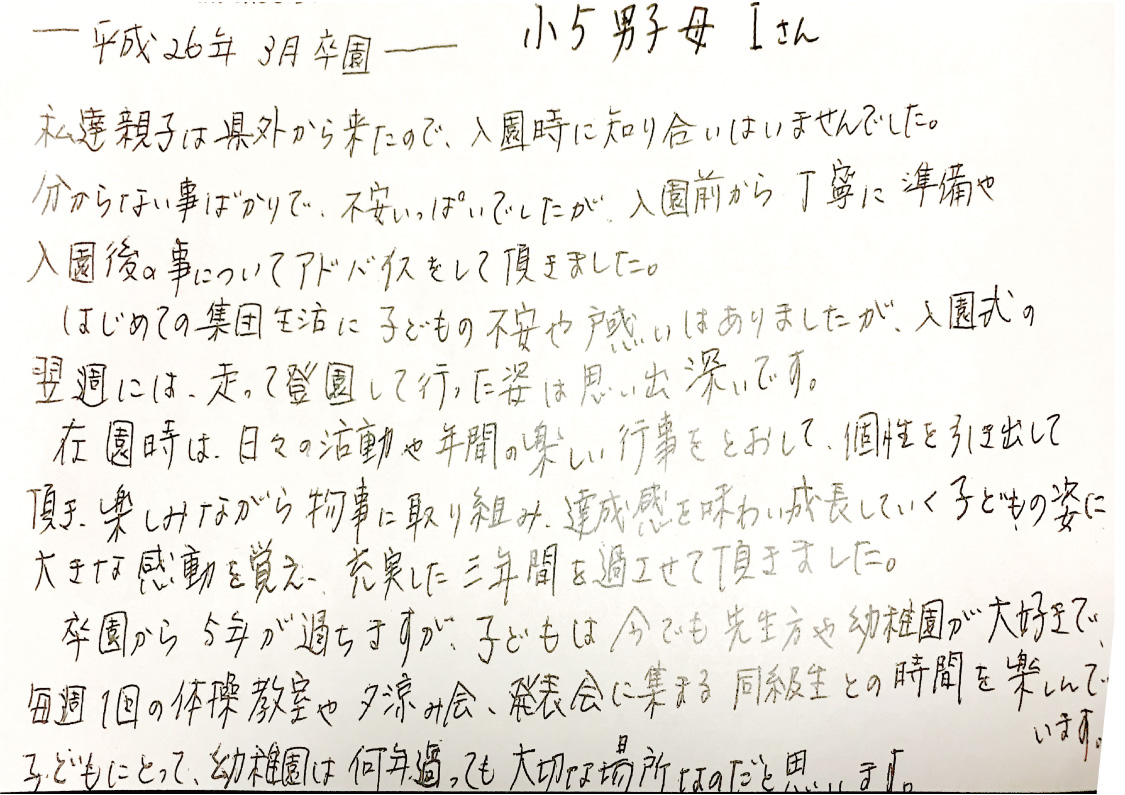 ― 平成26年 3月卒園 ― 小5男子母 Iさん
私達親子は県外から来たので、入園時に知り合いはいませんでした。
分からない事ばかりで、不安いっぱいでしたが、入園前から丁寧に準備や
入園後の事についてアドバイスをして頂きました。
はじめての集団生活に子どもの不安や戸惑いはありましたが、入園式の
翌週には、走って登園して行った姿は思い出深いです。
在園時は、日々の活動や年間の楽しい行事をとおして、個性を引き出して
頂き、楽しみながら物事に取り組み、達成感を味わい成長していく子どもの姿に
大きな感動を覚え、充実した三年間を過ごせて頂きました。
卒園から5年が過ちますが、子どもは今でも先生方や幼稚園が大好きで、
毎週1回の体操教室や夕涼み会、発表会に集まる同級生との時間を楽しんで
います。
子どもにとって、幼稚園は何年過っても大切な場所なのだと思います。